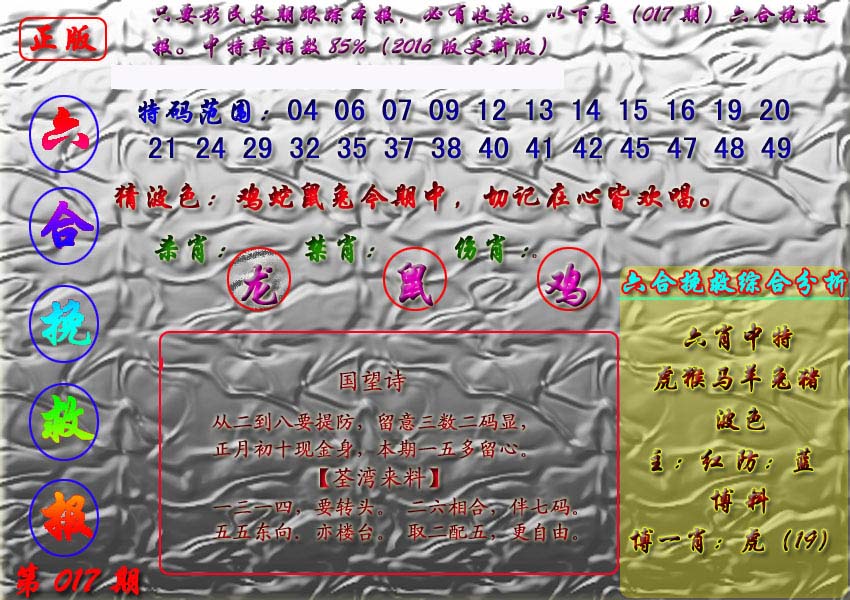 只要彩民长期跟踪本报，必有收获。以下是（017期）六合挽救
报。中特率指数85%（2016版更新版）
正版
六
合
挽
救
报
第 017 期
特码范围：04 06 07 09 12 13 14 15 16 19 20
21 24 29 32 35 37 38 40 41 42 45 47 48 49
猜波色：鸡蛇鼠兔今期中，切记在心皆欢唱。
杀肖：龙 禁肖：鼠 伤肖：。鸡
国望诗
从二到八要提防，留意三数二码显，
正月初十现金身，本期一五多留心。
【荃湾来料】
一三一四，要转头。 二六相合，伴七码。
五五东向．亦楼台。 取二配五，更自由。
六合挽救综合分析
六肖中特
虎猴马羊兔猪
波色
主：红防：蓝
博料
博一肖：虎（19）